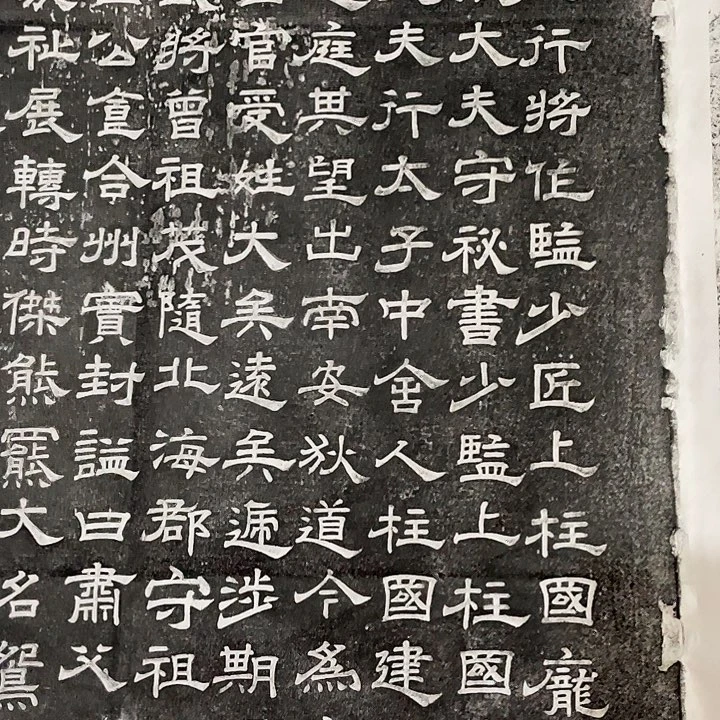 行將作監少匠上柱國龐
大夫守祕書少監上柱國
夫行太子中舍人柱國建
庭其望出南安狄道今為
官受姓大矣遠矣遞涉期
將曾祖茂隨北海郡守祖
公食合州實封謚曰肅父
祉展轉時傑熊羆大名鴛